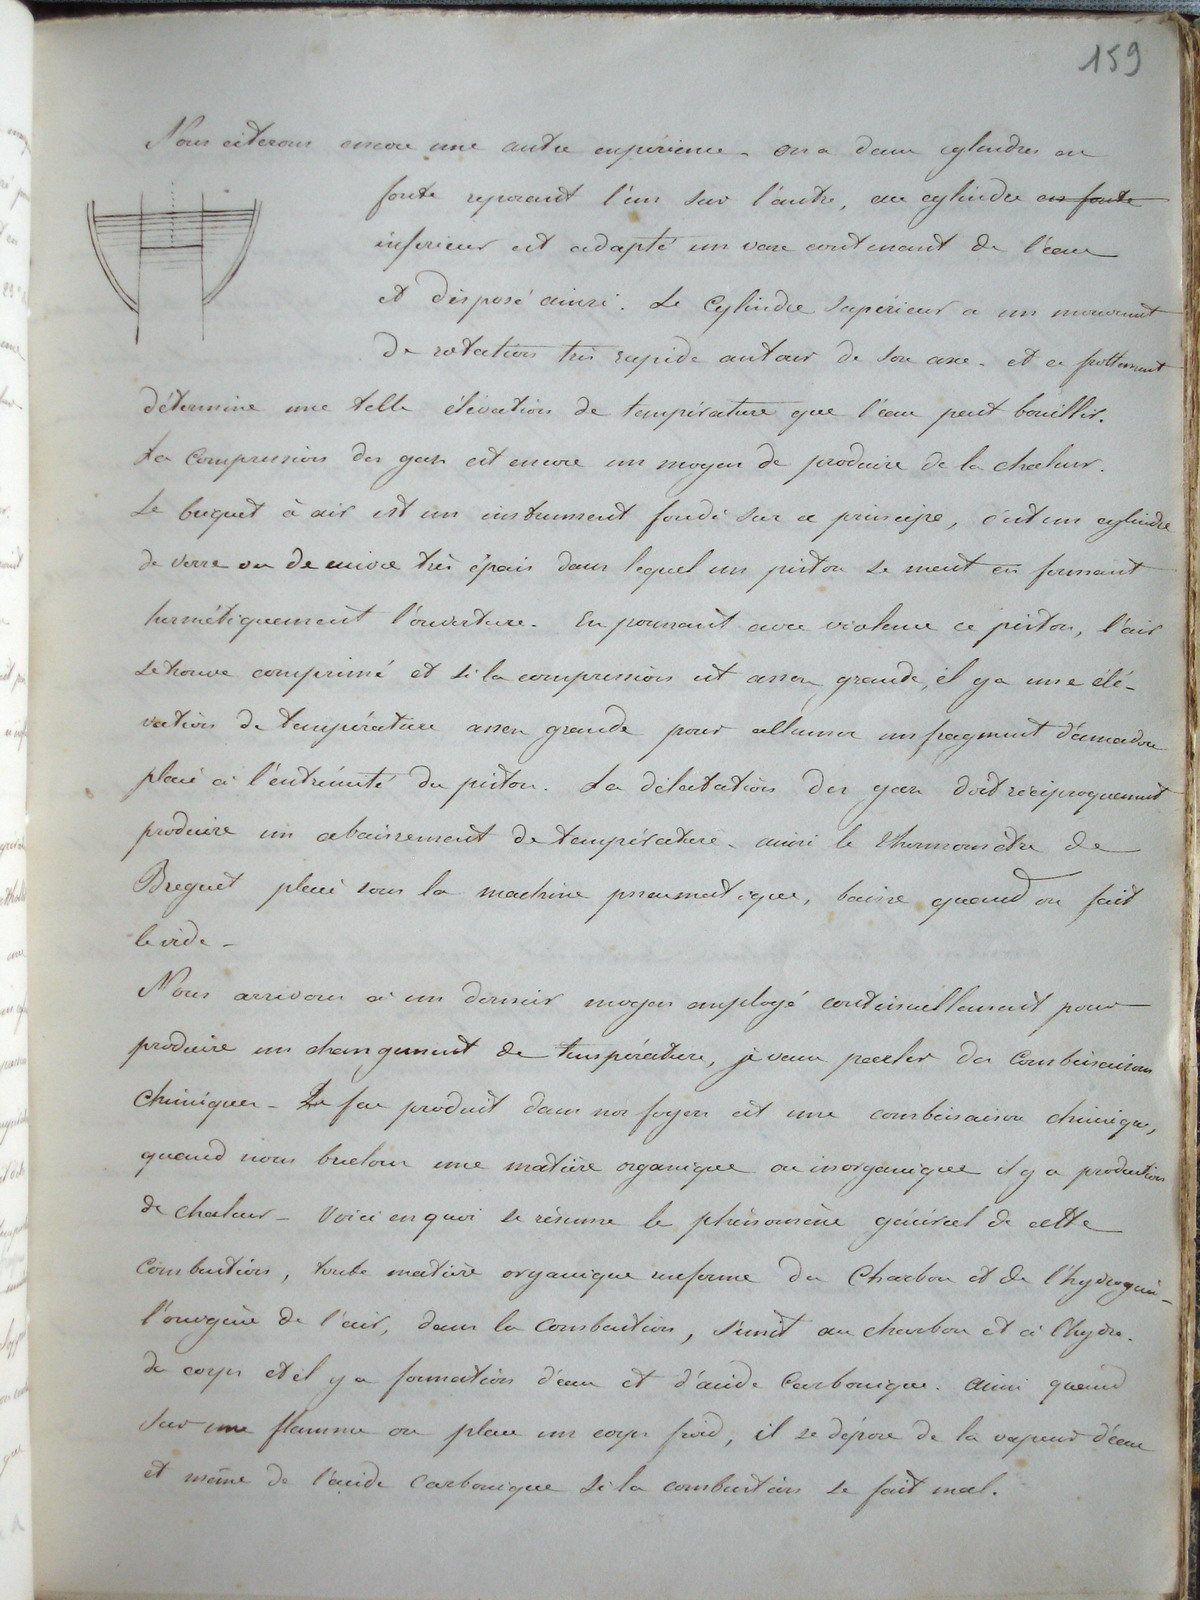 159
Nous citerons encore une autre expérience. On a deux cylindres en
fonte reposant l'un sur l'autre, au cylindre en fonte
inférieur est adapté un vase contenant de l'eau
et disposé ainsi. Le Cylindre supérieur a un mouvement
de rotation très rapide autour de son axe. et ce frottement
détermine une telle élévation de température que l'eau peut bouillir.
La Compression des gaz est encore un moyen de produire de la chaleur.
Le briquet à air est un instrument fondé sur ce principe, c'est un cylindre
de verre ou de cuivre très épais dans lequel un piston se meut en fermant
hermétiquement l'ouverture. En poussant avec violence ce piston, l'air
se trouve comprimé et si la compression est assez grande, il y a une élé-
vation de température assez grande pour allumer un fragment d'amadou
placé à l'extrémité du piston. La dilatation des gaz doit réciproquement
produire un abaissement de température. ainsi le thermomètre de
Breguet placé sous la machine pneumatique, baisse quand on fait
le vide -
Nous arrivons à un dernier moyen employé continuellement pour
produire un changement de température, je veux parler des Combinaisons
Chimiques - Le feu produit dans nos foyers est une combinaison chimique,
quand nous brulons une matière organique ou inorganique il y a production
de chaleur - Voici en quoi se résume le phénomène général de cette
Combustion, toute matière organique renferme du Charbon et de l'hydrogène -
l'oxygène de l'air, dans la Combustion, s'unit au charbon et à l'hydro.
du corps et il y a formation d'eau et d'acide Carbonique. Ainsi quand
sur une flamme on place un corps froid, il se dépose de la vapeur d'eau
et même de l'acide Carbonique si la combustion se fait mal.